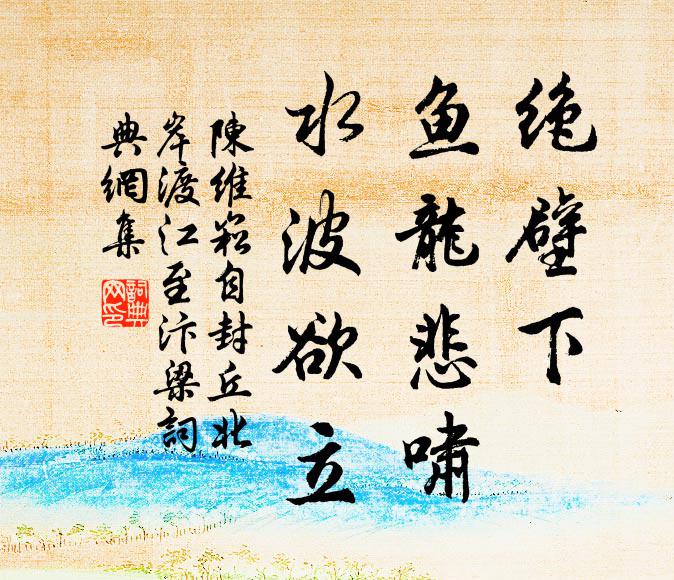 绝壁下
鱼龍悲啸
水波欲立
陳維崧自封丘北
岸渡江至汴梁詞
典網集
詞典
网印